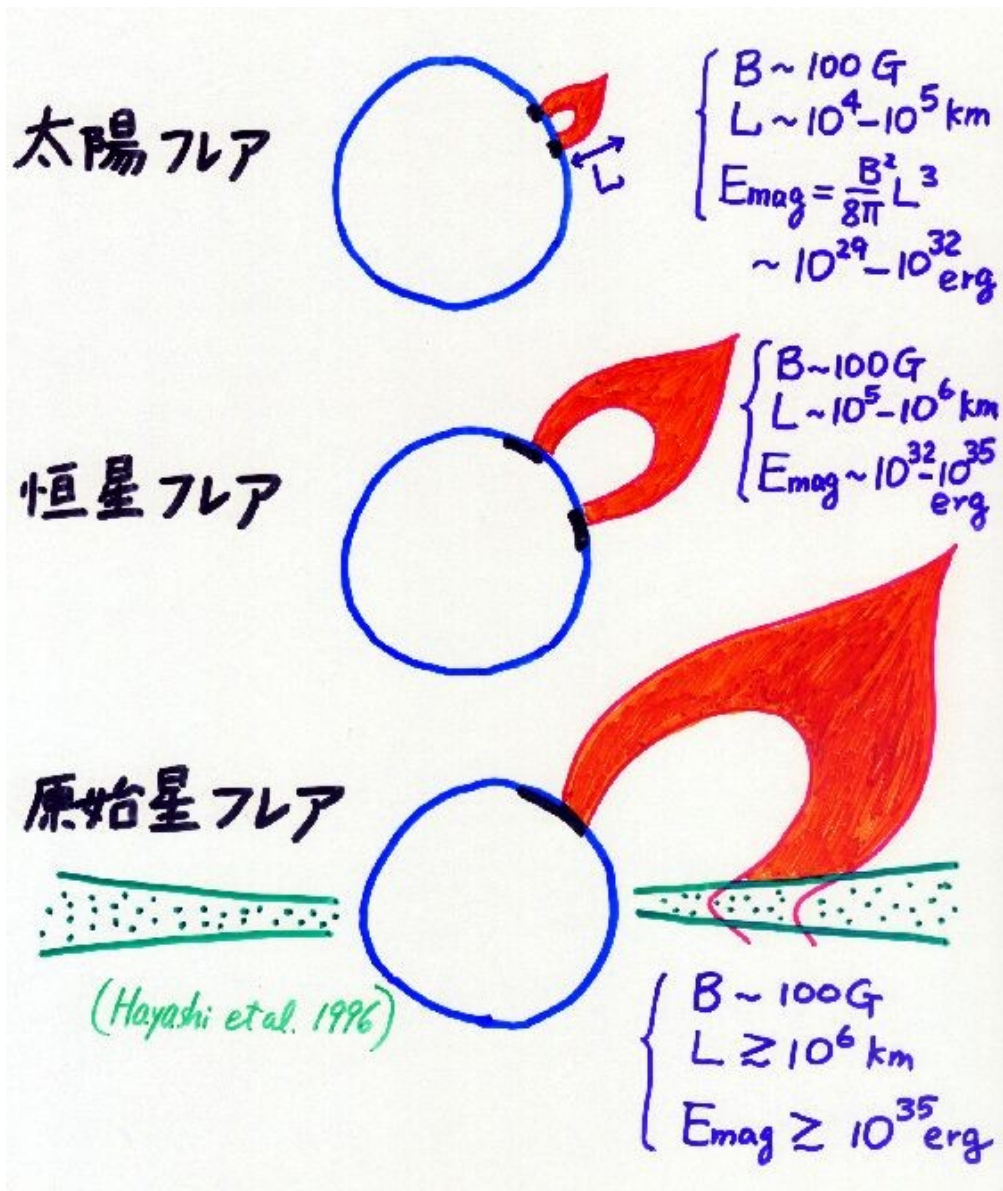 太陽フレア
B ~ 100 G
L ~ 10⁴-10⁵ km
Emag = B²/8π L³
~ 10²⁹-10³² erg
L
恒星フレア
B~100G
L ~10⁵-10⁶ km
Emag ~ 10³²-10³⁵ erg
原始星フレア
(Hayashi et al. 1996)
B ~ 100G
L ≳ 10⁶ km
Emag ≳ 10³⁵ erg